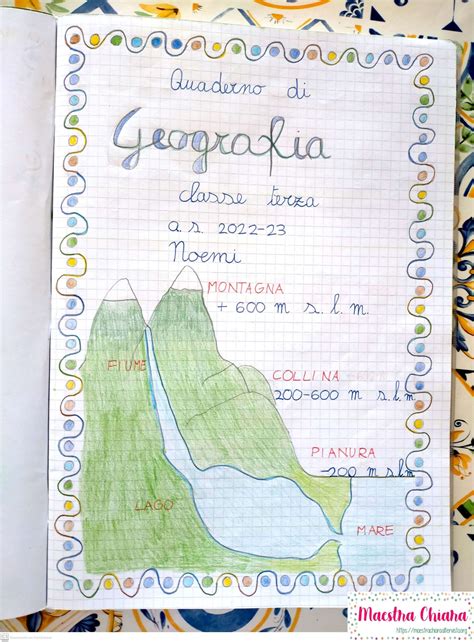 Quaderno di
Geografia
classe terza
a.s. 2022-23
Noemi
MONTAGNA
+ 600 m s.l.m.
FIUME
COLLINA
200-600 m s.l.m
PIANURA
-200 m s.l.m
LAGO
MARE
Maestra Chiara